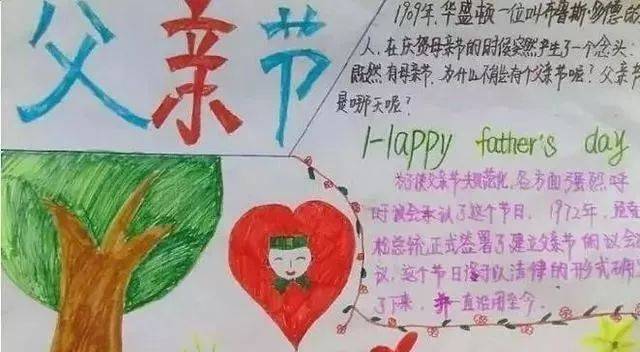 父亲节
1909年,华盛顿一位叫布鲁斯·多德的
人,在庆贺母亲节的时候突然产生了一个念头,
既然有母亲节,为什么不能有个父亲节呢?父亲节
是哪天呢?
Happy father's day
为了使父亲节规范化,各方面强烈呼
吁议会承认了这个节日。1972年,
松总统正式签署了建立父亲节的议会
议,这个节日终于以法律的形式
了下来,并一直沿用至今.